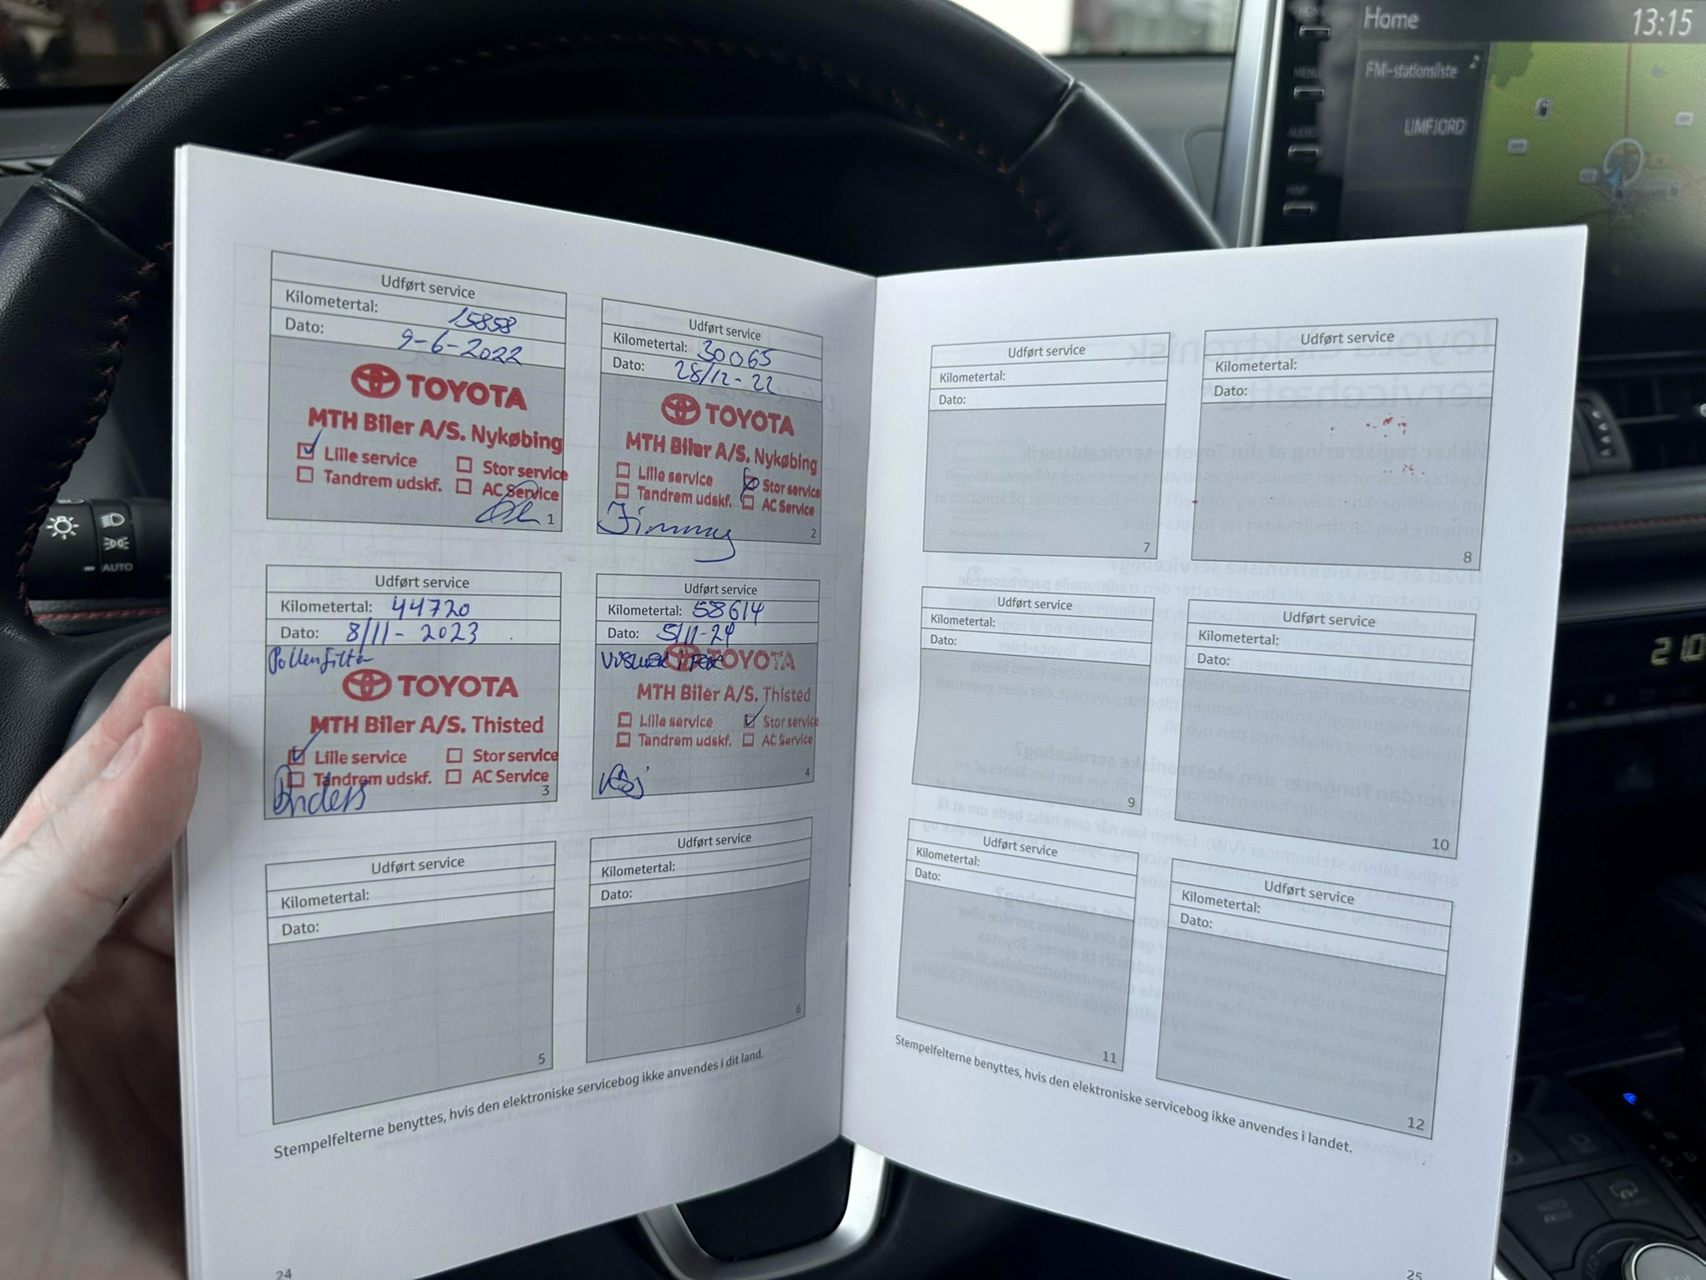 Home
13:15
FM-stationsliste
LIMFJORD
MENU
AUDIO
MAP
AUTO
Udført service
Kilometertal: 15858
Dato: 9-6-2022
TOYOTA
MTH Biler A/S. Nykøbing
Lille service
Stor service
Tandrem udskf.
AC Service
1
Udført service
Kilometertal: 30065
Dato: 28/12-22
TOYOTA
MTH Biler A/S. Nykøbing
Lille service
Stor service
Tandrem udskf.
AC Service
Jimmy
2
Udført service
Kilometertal: 44720
Dato: 8/11-2023
Pollenfilter
TOYOTA
MTH Biler A/S. Thisted
Lille service
Stor service
Tandrem udskf.
AC Service
Anders
3
Udført service
Kilometertal: 58614
Dato: 5/11-24
TOYOTA
MTH Biler A/S. Thisted
Lille service
Stor service
Tandrem udskf.
AC Service
4
Udført service
Kilometertal:
Dato:
5
Udført service
Kilometertal:
Dato:
6
Stempelfelterne benyttes, hvis den elektroniske servicebog ikke anvendes i dit land.
24
Udført service
Kilometertal:
Dato:
7
Udført service
Kilometertal:
Dato:
8
Udført service
Kilometertal:
Dato:
9
Udført service
Kilometertal:
Dato:
10
Udført service
Kilometertal:
Dato:
11
Udført service
Kilometertal:
Dato:
12
Stempelfelterne benyttes, hvis den elektroniske servicebog ikke anvendes i landet.
25